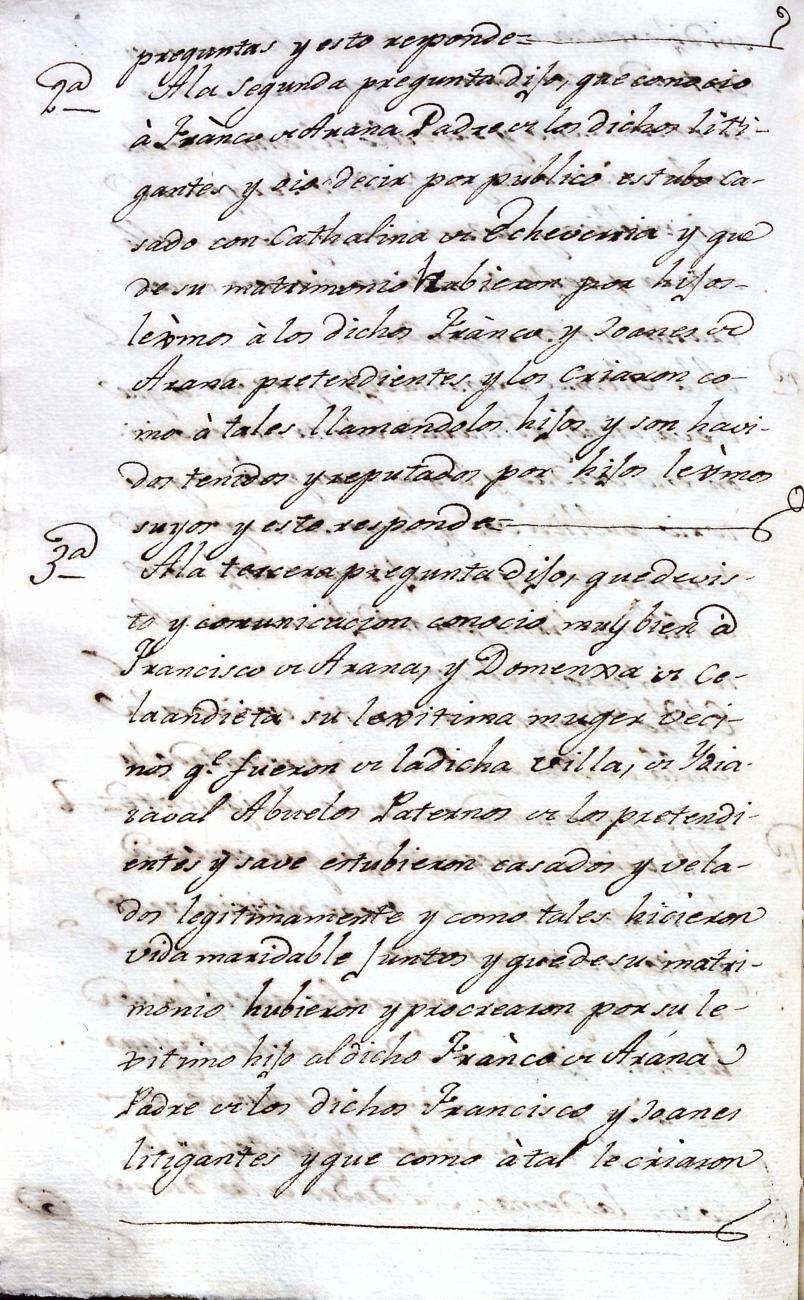 preguntas y esto responde=
2ª Ala Segunda pregunta dijo, que conocio
à Frànco de Arana Padre de los dichos liti-
gantes y oio decir por publicó estubo ca-
sado con Cathalina de Echeverria y que
de su matrimonio hubieron por hijos-
lexmos à los dichos Frànco y Joanes de
Arana pretendientes y los criaron co-
mo à tales llamandolos hijos y son havi-
dos tenidos y reputados por hijos lexmos
suyos y esto responde=
3ª Ala tercera pregunta dijo, que de vis-
to y comunicacion conocio muy bien à
Francisco de Arana, y Domenxa de Ce-
laandieta su lexitima muger veci-
nos qe fueron de la dicha villa, de Ydia-
zaval Abuelos Paternos de los pretendi-
entes y save estubieron casados y vela-
dos legitimamente y como tales hicieron
vida maridable Juntos y que de su matri-
monio hubieron y procrearon por su le-
xitimo hijo al dicho Frànco de Arána
Padre de los dichos Francisco y Joanes
litigantes y que como à tal le criaron